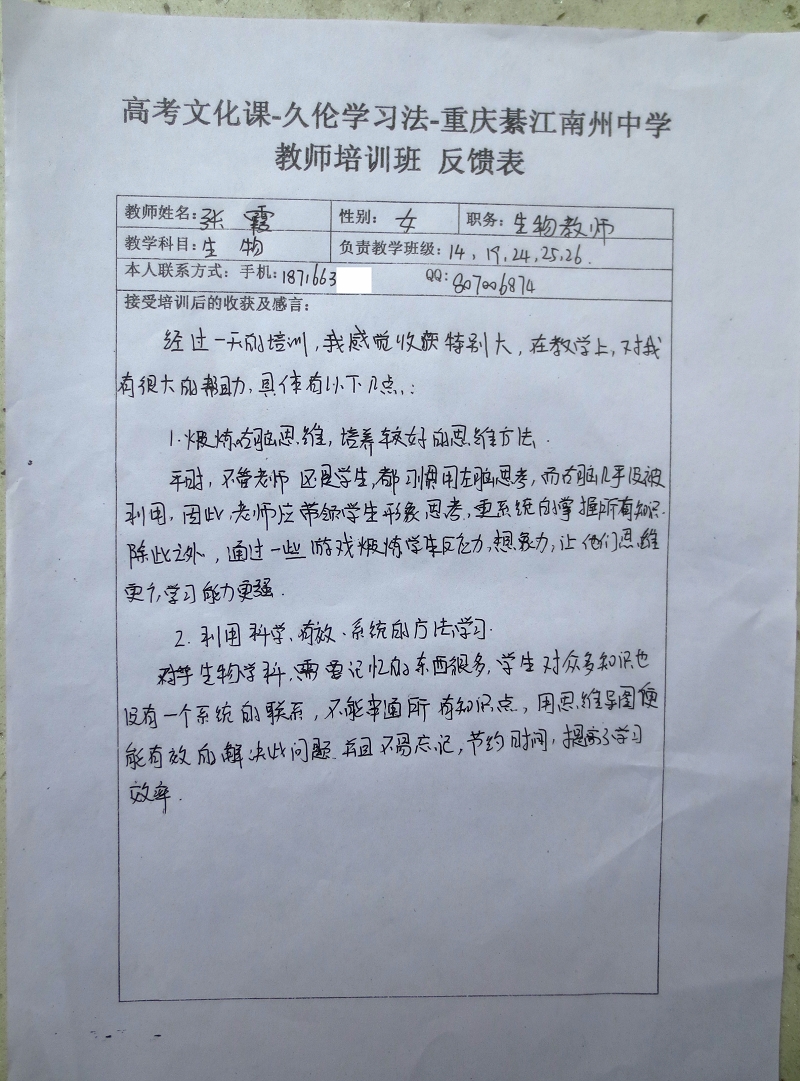 高考文化课-久伦学习法-重庆綦江南州中学
教师培训班 反馈表
教师姓名:张 霞 性别: 女 职务: 生物教师
教学科目:生 物 负责教学班级: 14, 19, 24, 25, 26.
本人联系方式: 手机: 1871663 QQ: 807006874
接受培训后的收获及感言:
经过一天的培训,我感觉收获特别大,在教学上,对我
有很大的帮助,具体有以下几点:
1.煅炼右脑思维,培养较好的思维方法.
平时,不管老师还是学生,都习惯用左脑思考,而右脑几乎没被
利用,因此,老师应带领学生形象思考,更系统的掌握所有知识.
除此之外,通过一些游戏煅炼学生反应力,想象力,让他们思维
更广,学习能力更强.
2.利用科学、有效、系统的方法学习.
生物学科,需要记忆的东西很多,学生对众多知识也
没有一个系统的联系,不能串通所有知识点,用思维导图便
能有效的解决此问题.并且不易忘记,节约时间,提高了学习
效率.